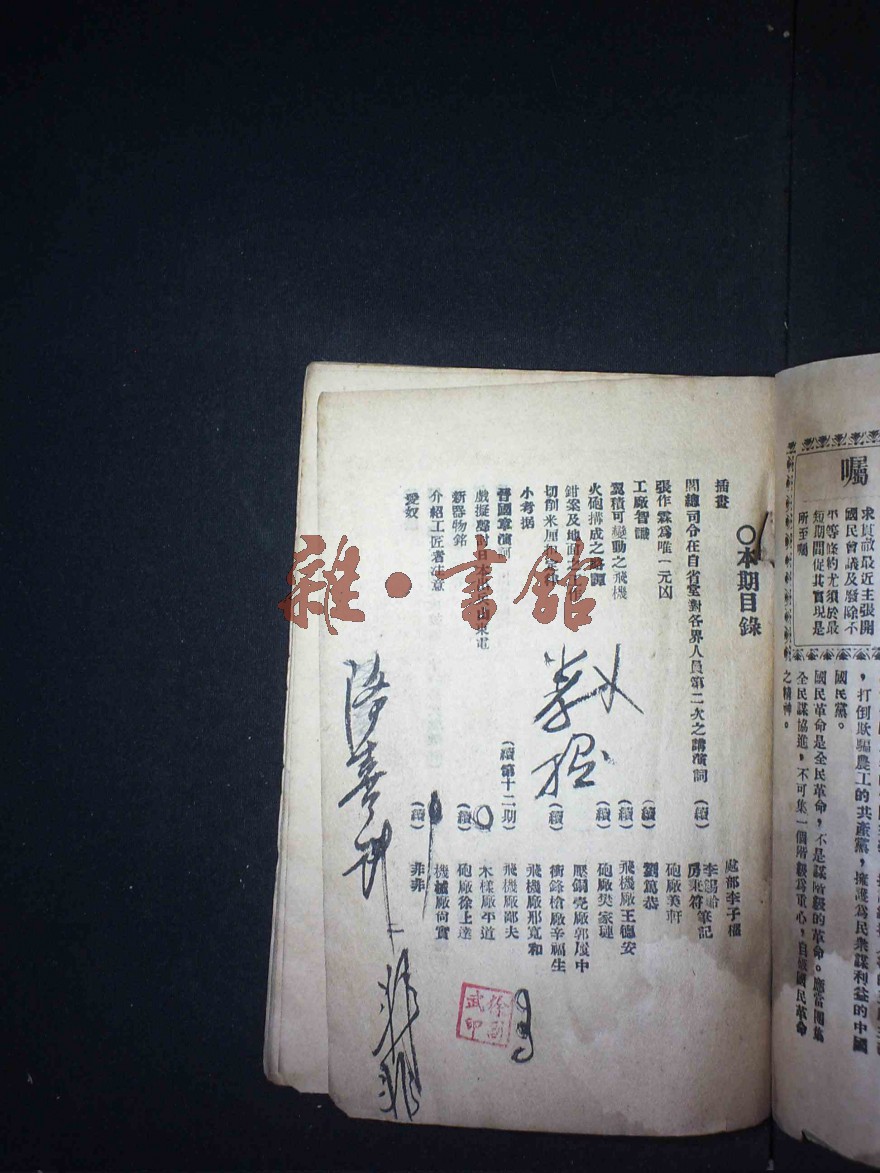 囑
求貫徹最近主張開
國民會議及廢除不
平等條約尤須於最
短期間促其實現是
所至囑
，打倒欺騙農工的共產黨，擁護爲民衆謀利益的中國
國民黨。
國民革命是全民革命，不是謀階級的革命。應當團集
全民謀協進，不可集一個階級爲重心，自破國民革命
之精神。
〇本期目錄
插畫 處部李子權
閻總司令在自省堂對各界人員第二次之講演詞 (續) 李錫 筆記
房秉符
張作霖爲唯一元凶 砲廠美軒
工廠智識 (續) 劉篤恭
翼積可變動之飛機 (續) 飛機廠王德安
火砲搆成之 (續) 砲廠樊家璉
鉗案及地面 壓銅壳廠郭履中
切削米厘 (續) 衝鋒槍廠辛福生
小考據 飛機廠邢寬和
晉國章演詞 (續第十二期) 飛機廠鄙夫
戲擬 對日本出兵山東電 木樣廠平道
新器物銘 (續) 砲廠徐上達
介紹工匠者注意 機械廠尙實
愛奴 (續) 非非
雜·書館